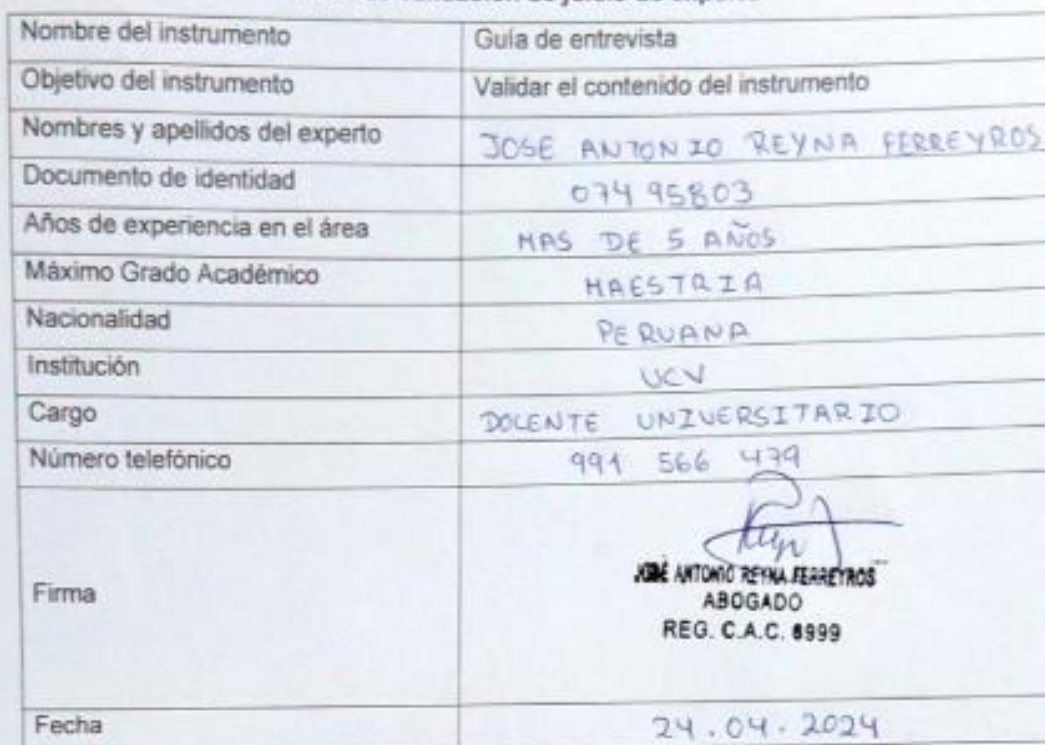 validación de juicio de experto
Nombre del instrumento Guía de entrevista
Objetivo del instrumento Validar el contenido del instrumento
Nombres y apellidos del experto JOSE ANTONIO REYNA FERREYROS
Documento de identidad 07495803
Años de experiencia en el área MAS DE 5 AÑOS
Máximo Grado Académico MAESTRIA
Nacionalidad PERUANA
Institución UCV
Cargo DOCENTE UNIVERSITARIO
Número telefónico 991 566 479
Firma
JOSÉ ANTONIO REYNA FERREYROS
ABOGADO
REG. C.A.C. 8999
Fecha 24.04.2024